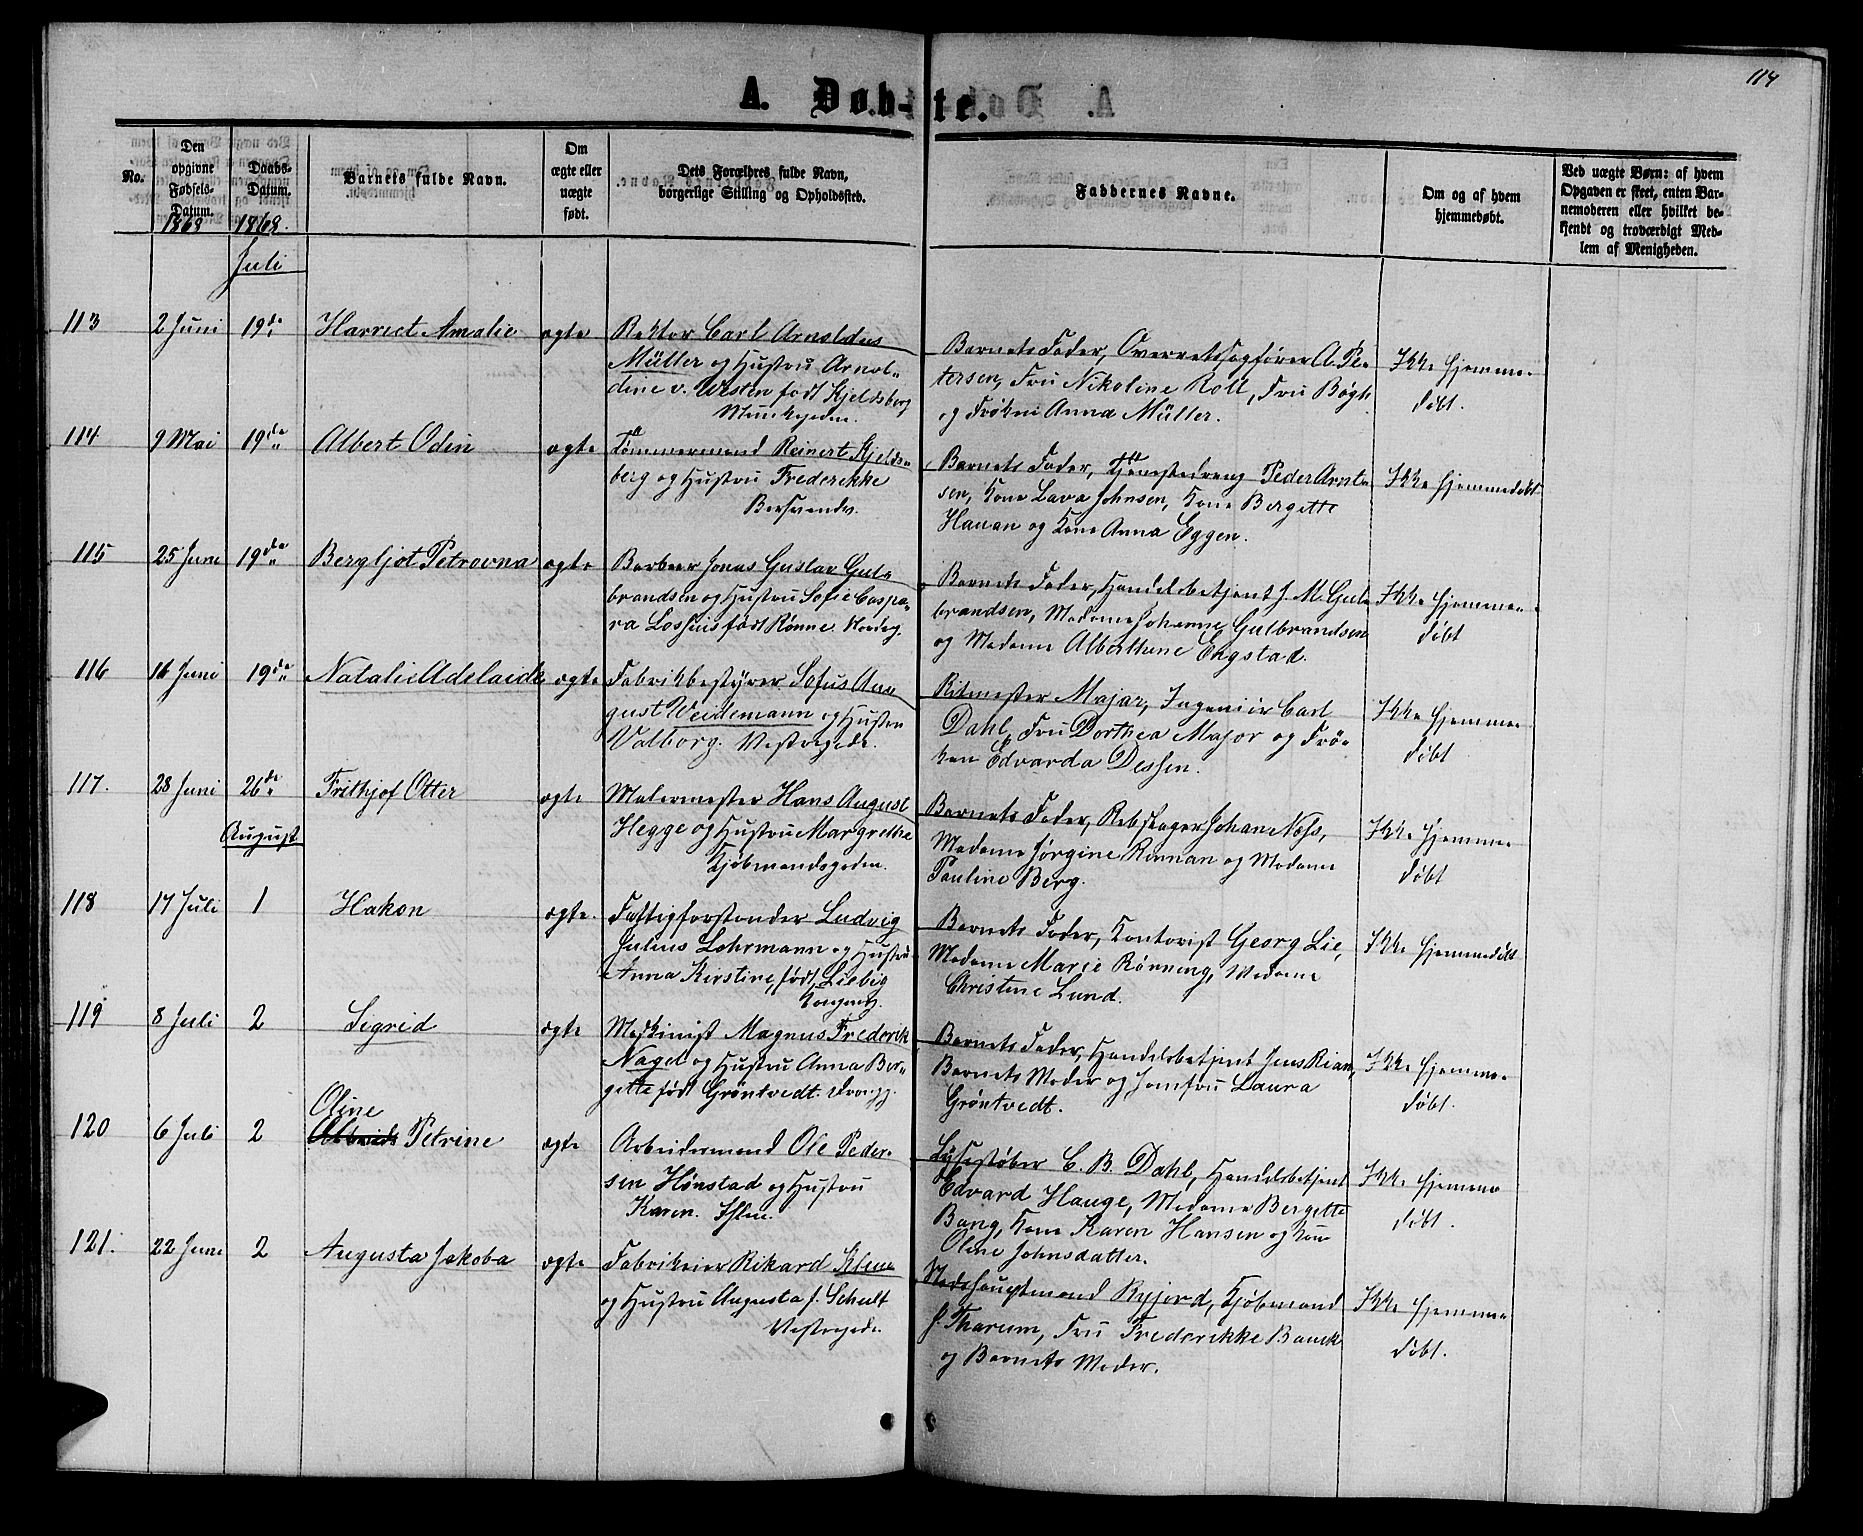 114
A. Døb-te.
No.
Den opgivne Fødsels-Datum.
1868
Daabs-Datum.
1868.
Barnets fulde Navn.
Om ægte eller uægte født.
Dets Forældres fulde Navn, borgerlige Stilling og Opholdssted.
Faddernes Navne.
Om og af hvem hjemmedøbt.
Ved uægte Børn: af hvem Opgaven er skeet, enten Barnemoderen eller hvilket bekjendt og troværdigt Medlem af Menigheden.
Juli
113 2 Juni 19de Harriet Amalie ægte
Rektor Carl Arnoldus
Müller og Hustru Arnol-
dine v. Westen født Kjeldsberg
Munkegaden.
Barnets Fader, Overretssagfører A. Pe-
tersen, Fru Nikoline Roll, Fru Bøgh
og Frøken Anna Müller.
Ikke hjemme-
døbt.
114 9 Mai 19de Albert Odin ægte
Tømmermand Reinert Kjelds-
berg og Hustru Frederikke
Bersvends.
Barnets Fader, Tjenestedreng Peder Arnt-
sen, Kone Lava Johnsen, Kone Bergitte
Hauan og Kone Anna Eggen.
Ikke hjemmedøbt
115 25 Juni 19de Bergljot Petrovna ægte
Barber Jonas Gustav Gul-
brandsen og Hustru Sofie Caspa-
ra Losshius født Rønne. Nordreg.
Barnets Fader, Handelsbetjent J. M. Gul-
brandsen, Madame Johanne Gulbrandsen
og Madame Alberthine Engstad.
Ikke hjemme-
døbt
116 16 Juni 19de Natalie Adelaide ægte
Fabrikbestyrer Sofus Au-
gust Weidemann og Hustru
Valborg. Vestregade.
Ritmester Major, Ingeniør Carl
Dahl, Fru Dorthea Major og Frø-
ken Edvarda Dessen.
Ikke hjemme-
døbt
117. 28 Juni 26de Frithjof Otter ægte
Malermester Hans August
Hegge og Hustru Margrethe
Kjøbmandsgaden.
Barnets Fader, Rebslager Johan Næss,
Madame Jørgine Rannan og Madame
Pauline Berg.
Ikke hjemme-
døbt
August
118 17 Juli 1 Hakon ægte.
Fattigforstander Ludvig
Julius Lohrmann og Hustru
Anna Kirstine, født Liebig
Kongensg.
Barnets Fader, Kontorist Georg Lie,
Madame Marie Rønning, Madame
Christine Lund.
Ikke hjemmedøbt
119 8 Juli 2 Sigrid ægte
Maskinist Magnus Frederik
Nagel og Hustru Anna Ber-
gitte født Grøntvedt.
Barnets Fader, Handelsbetjent Jens Rian,
Barnets Moder og Jomfru Laura
Grøntvedt.
Ikke hjemme-
døbt.
Oline
120 6 Juli 2 Petrine ægte
Arbeidermand Ole Peder-
sen Hønstad og Hustru
Karen. Ihlen.
Lysestøber C. B. Dahl, Handelsbetjent
Edvard Hauge, Madame Bergitte
Bang, Kone Karen Hansen og Kone
Oline Johnsdatter.
Ikke hjemme
døbt.
121. 22 Juni 2 Augusta Jakoba ægte
Fabrikeier Rikard
og Hustru Augusta f. Schult
Vestregade.
Ryjord, Kjøbmand
J. Tharum, Fru Frederikke Bauck
og Barnets Moder.
Ikke hjemme-
døbt.